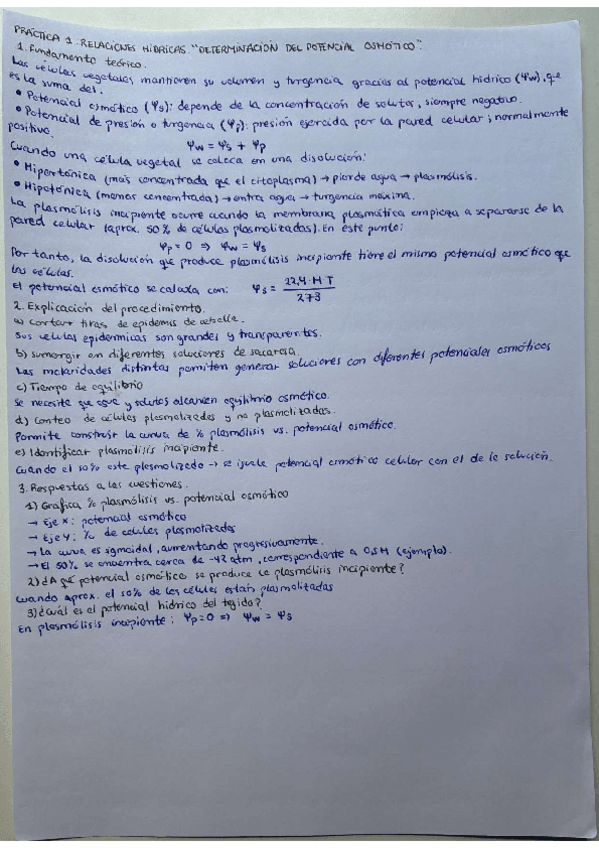 PRÁCTICA 1. RELACIONES HÍDRICAS. "DETERMINACIÓN DEL POTENCIAL OSMÓTICO".
1. Fundamento teórico.
Las células vegetales mantienen su volumen y turgencia gracias al potencial hídrico (Ψw), que
es la suma del:
• Potencial osmótico (Ψs): depende de la concentración de soluto, siempre negativo.
• Potencial de presión o turgencia (Ψp): presión ejercida por la pared celular; normalmente
positivo.
Ψw = Ψs + Ψp
Cuando una célula vegetal se coloca en una disolución:
• Hipertónica (más concentrada que el citoplasma) → pierde agua → plasmólisis.
• Hipotónica (menos concentrada) → entra agua → turgencia máxima.
La plasmólisis incipiente ocurre cuando la membrana plasmática empieza a separarse de la
pared celular (aprox. 50% de células plasmolizadas). En este punto:
Ψp = 0 ⇒ Ψw = Ψs
Por tanto, la disolución que produce plasmólisis incipiente tiene el mismo potencial osmótico que
las células.
El potencial osmótico se calcula con: Ψs = 22,4·M·T / 273
2. Explicación del procedimiento.
a) Cortar tiras de epidermis de cebolla.
Sus células epidérmicas son grandes y transparentes.
b) sumergir en diferentes soluciones de sacarosa.
Las molaridades distintas permiten generar soluciones con diferentes potenciales osmóticos
c) Tiempo de equilibrio
Se necesita que agua y solutos alcancen equilibrio osmótico.
d) Conteo de células plasmolizadas y no plasmolizadas.
Permite construir la curva de % plasmólisis vs. potencial osmótico.
e) Identificar plasmólisis incipiente.
Cuando el 50% este plasmolizado → se iguala potencial osmótico celular con el de la solución.
3. Respuestas a las cuestiones.
1) Gráfica % plasmólisis vs. potencial osmótico
→ Eje X: potencial osmótico
→ Eje Y: % de células plasmolizadas
→ La curva es sigmoidal, aumentando progresivamente.
→ El 50% se encuentra cerca de -12 atm, correspondiente a 0,5M (ejemplo).
2) ¿A qué potencial osmótico se produce la plasmólisis incipiente?
Cuando aprox. el 50% de las células están plasmolizadas
3) ¿Cuál es el potencial hídrico del tejido?
En plasmólisis incipiente: Ψp=0 ⇒ Ψw = Ψs